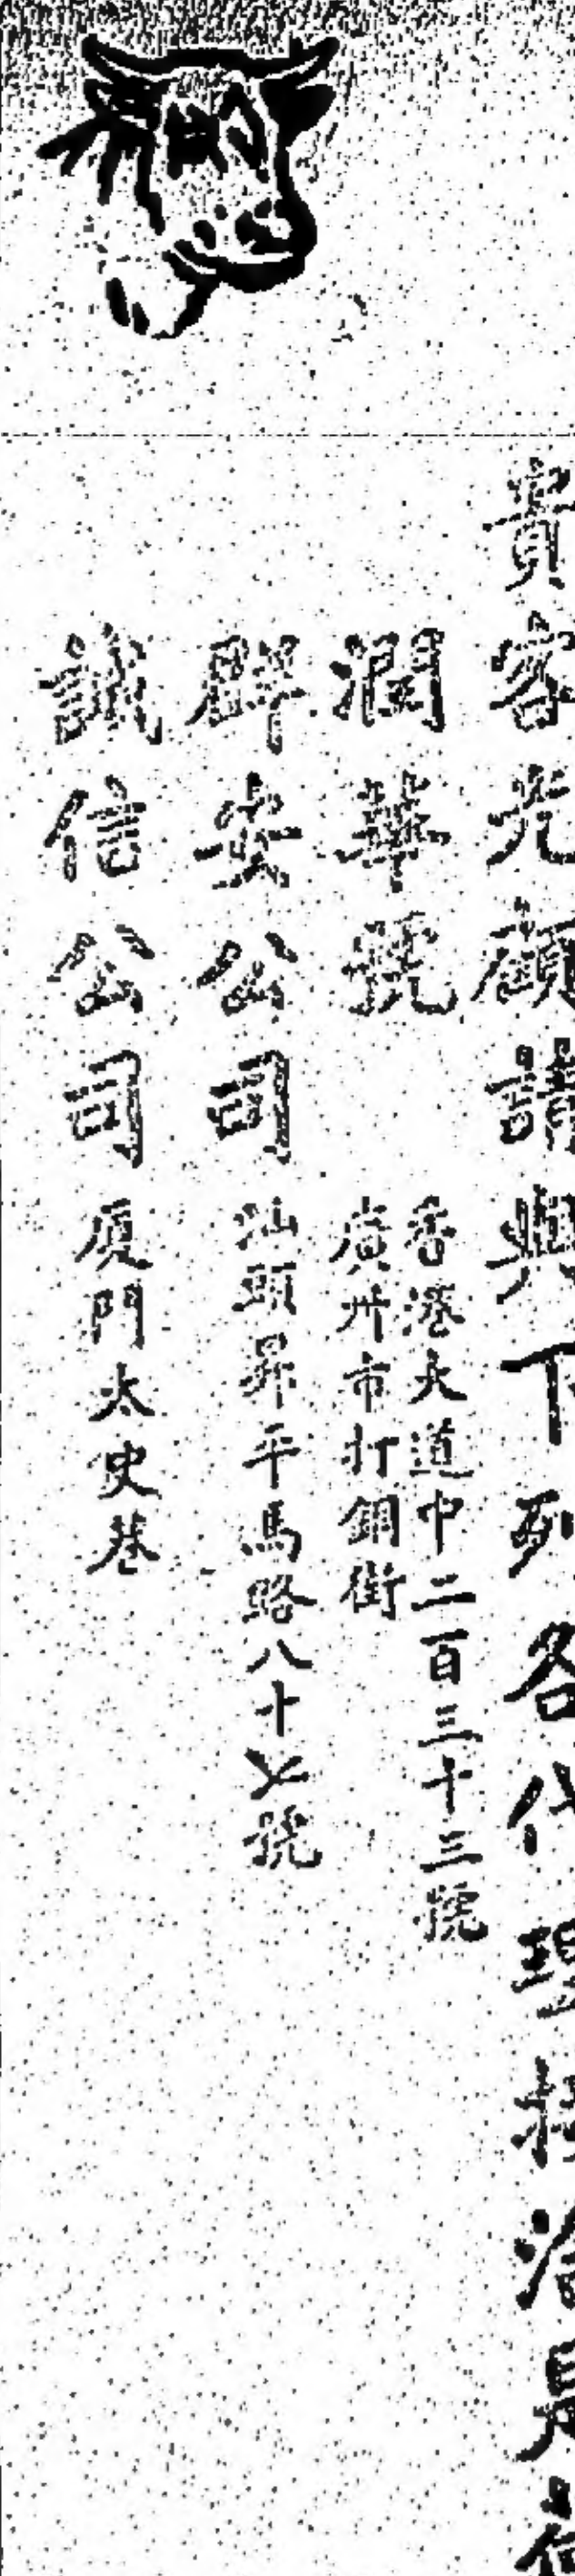 貴客光顧請與下列各代理接洽是荷
潤華號
香港大道中二百三十三號
廣州市打銅街
安公司
汕頭昇平馬路八十七號
誠信公司
厦門太史巷